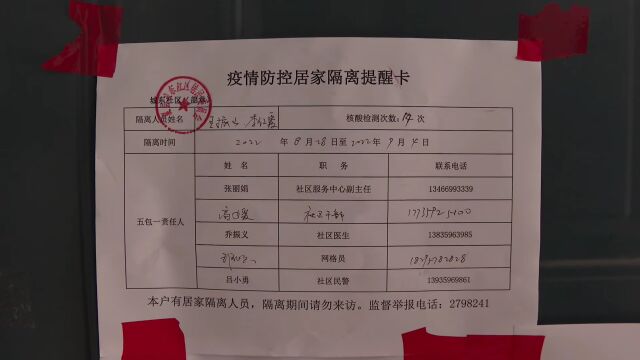 疫情防控居家隔离提醒卡
城东社区（盖章）
隔离人员姓名 核酸检测次数: 次
隔离时间 2022 年 8 月 28 日至 2022 年 9 月 4 日
五包一责任人
姓 名 职 务 联系电话
张丽娟 社区服务中心副主任 13466993339
社区干部
乔振义 社区医生 13835963985
网格员
吕小勇 社区民警 13935969861
本户有居家隔离人员，隔离期间请勿来访。监督举报电话：2798241